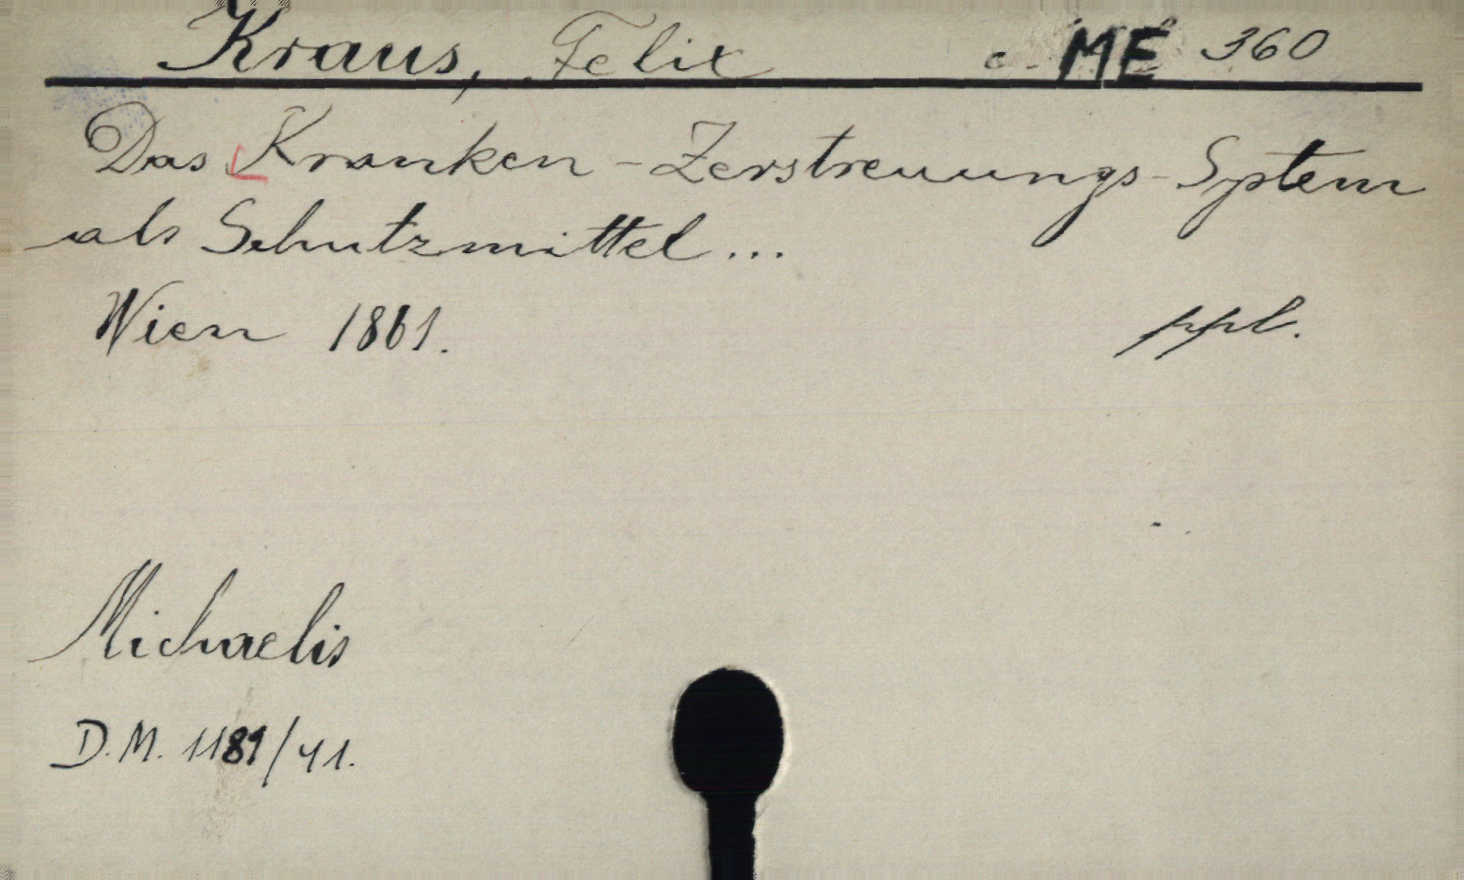 Kraus, Felix c. ME 360
Das Kranken-Zerstreuungs-System
als Schutzmittel...
Wien 1861. ppl.
Michaelis
D.M. 1189/41.